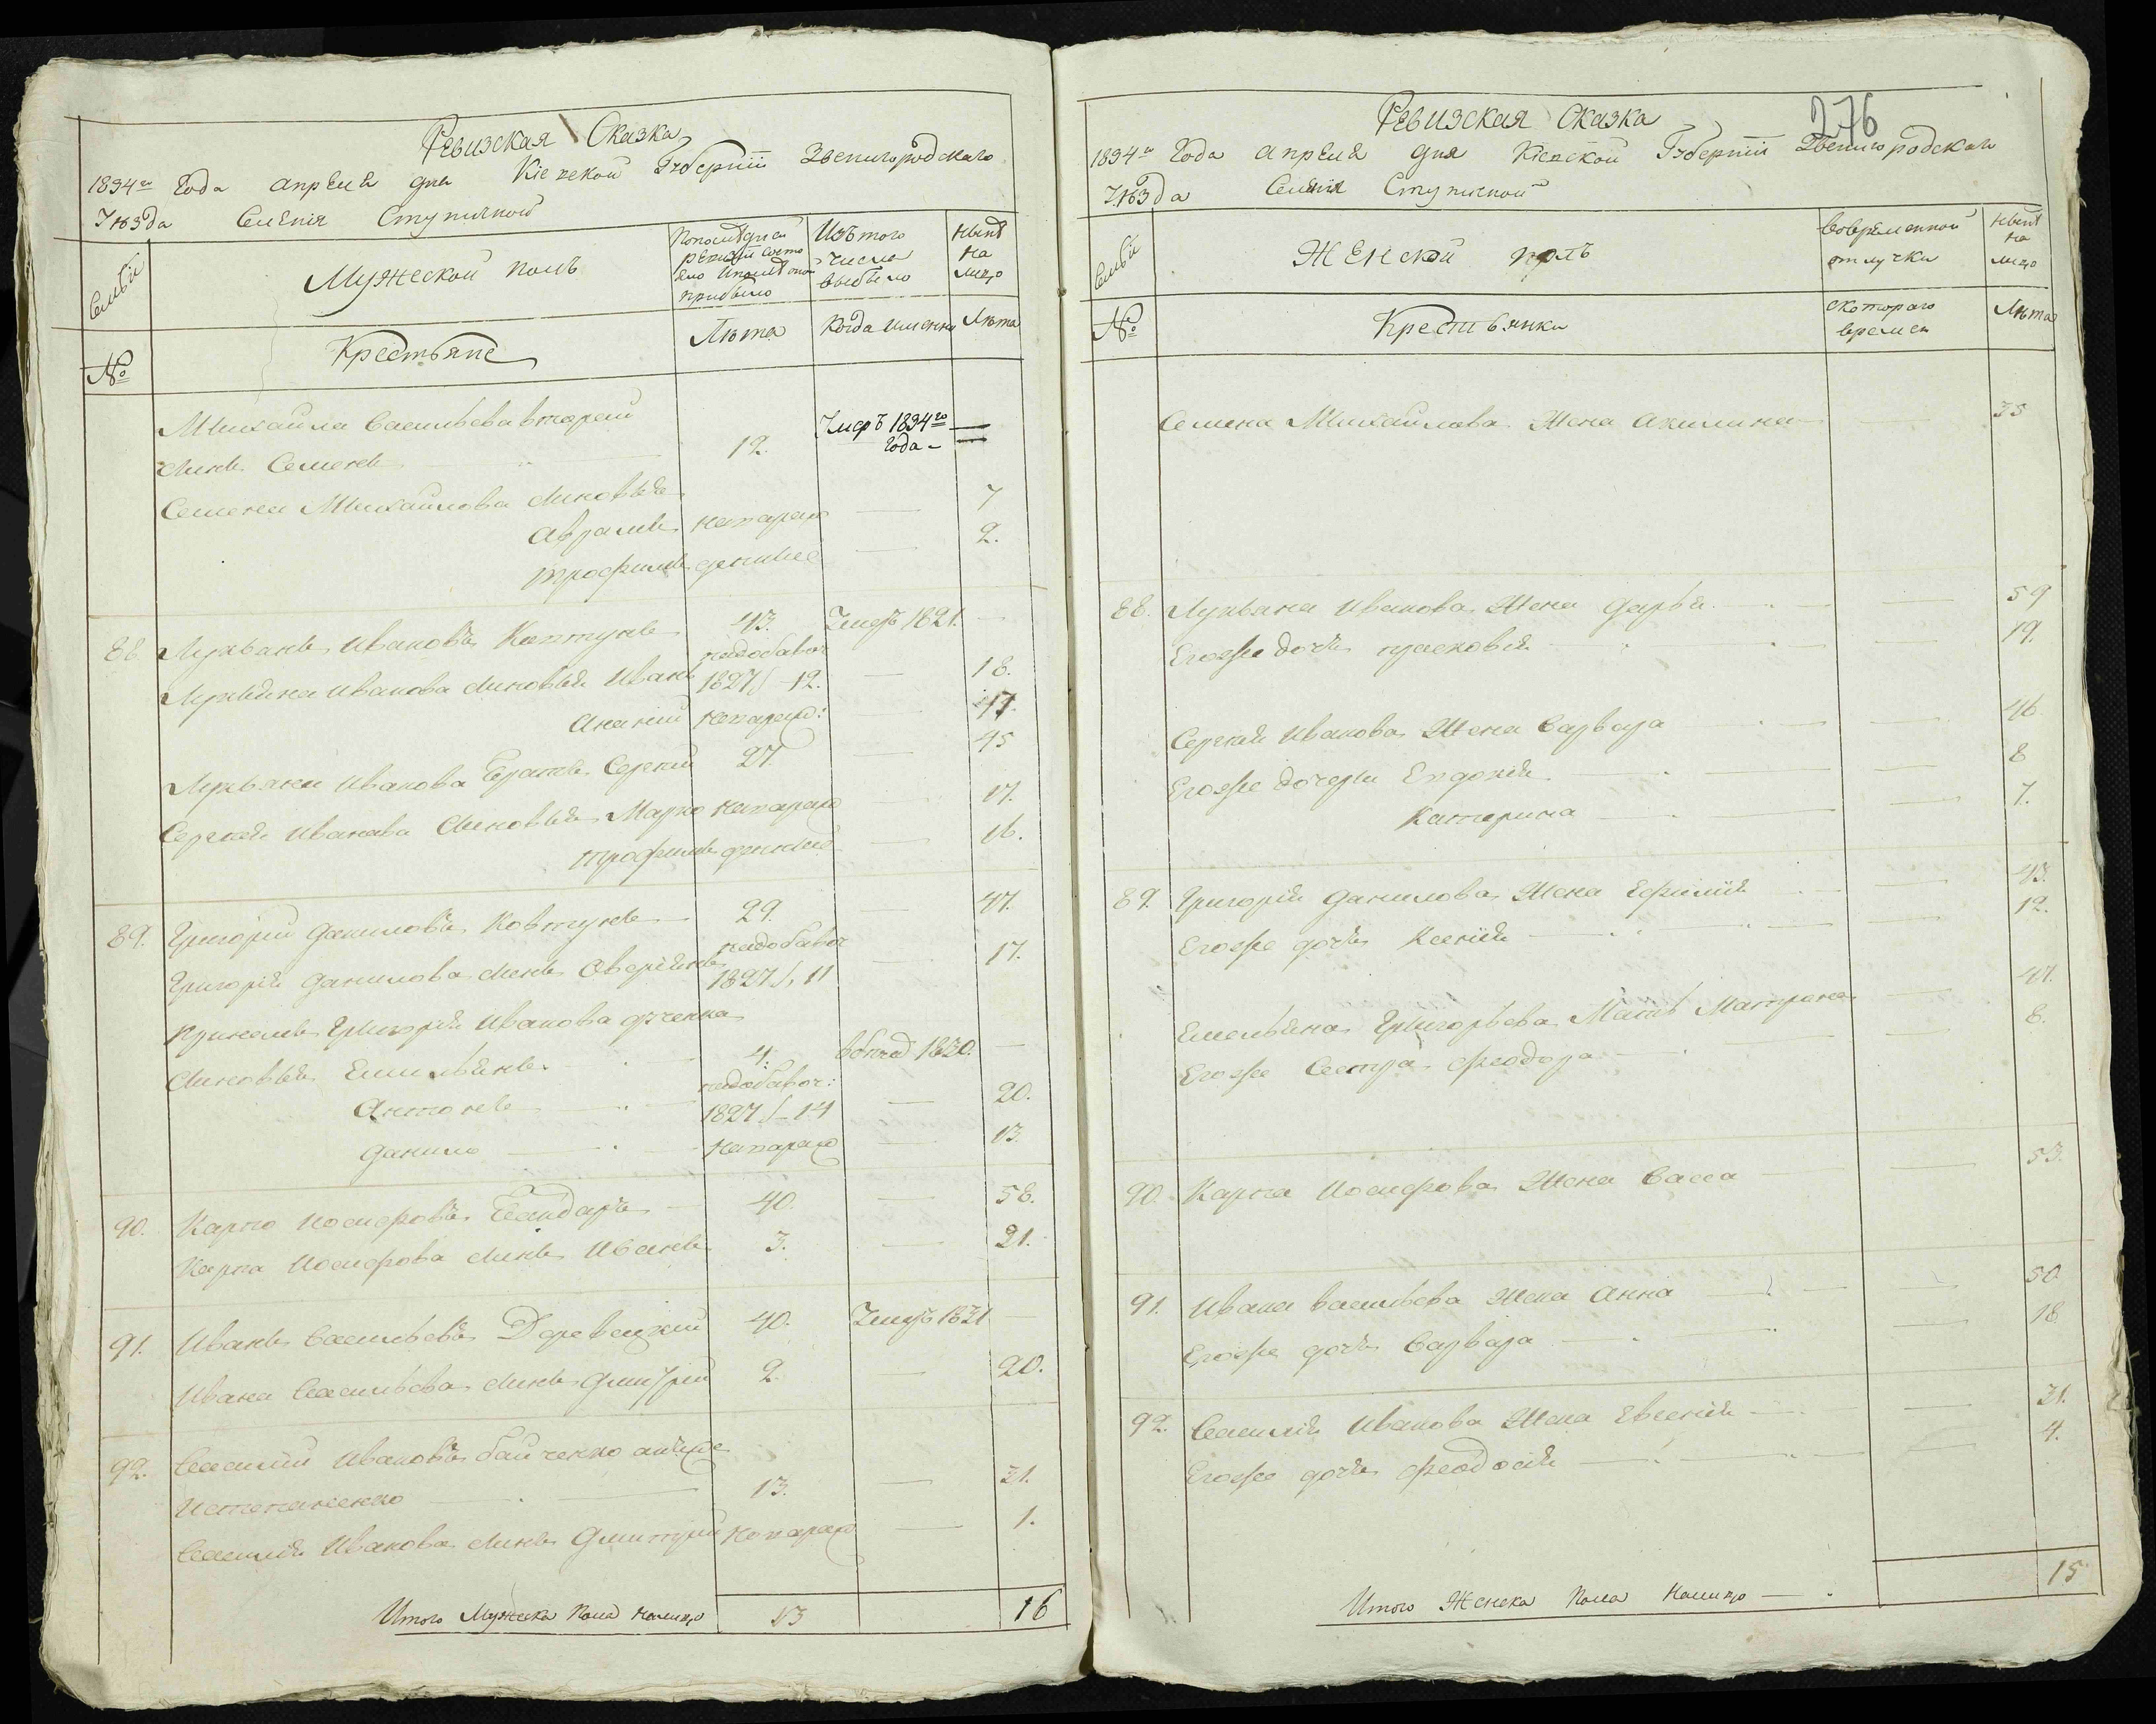 Ревизская Сказка
1834го Года апреля дня Кіевской Губерніи Звенигородскаго
Уѣзда Селенія Ступичной
Семьи
Мужеской полъ
По последней ревизіи состояло и после оной прибыло
Изъ того числа выбыло
Нынѣ на лицо
№
Крестьяне
Лѣта
Когда именно
Лѣта
Михайла Васильева вторый
сынъ Семенъ 12. Умеръ 1834го года —
Семена Михайлова сыновья
Аврамъ напаред 7
Трофимъ 2.
88. Лукьянъ Ивановъ Каптунъ 43. Умеръ 1821. —
Лукьяна Иванова сыновья Иванъ 1827 12. — 18.
Ананий напаред: — 17.
Лукьяна Иванова братъ Сергий 27. — 45
Сергия Иванова сыновья Марко напаред — 17.
Трофимъ — 16.
89. Григорий Даниловъ Ковтунъ 29. — 47.
Григорія Данилова сынъ Аверіянъ 1827 11 — 17.
Григорія Иванова
сыновья Емильянъ 4. 1830. —
Антонъ 1827 14 — 20.
Данило напаред — 13.
90. Карпо Иосифовъ Бандаръ 40. — 58.
Карпа Иосифова сынъ Иванъ 3. — 21.
91. Иванъ Васильевъ Деревецкий 40. Умеръ 1831 —
Ивана Васильева сынъ Дмитрий 2. — 20.
92. Василий Ивановъ байченко
13. — 31.
Василія Иванова сынъ Дмитрий напаред — 1.
Итого Мужеска Пола налицо 13 16
276
Ревизская Сказка
1834го Года апреля дня Кіевской Губерніи Звенигородскаго
Уѣзда Селенія Ступичной
Семьи
Женской полъ
Во временной отлучки
Нынѣ на лицо
№
Крестьянки
с котораго времен
Лѣта
Семена Михайлова Жена Акилина — 35
88. Лукьяна Иванова Жена Дарья — 59
Егоже дочь прасковія — 19.
Сергия Иванова Жена Варвара — 46
Егоже дочери Евдокія — 8
Катерина — 7.
89. Григорія Данилова Жена Ефимія — 43.
Егоже дочь Ксенія — 12.
Емельяна Григорьева Мать Матрона — 47.
Егоже Сестра феодора — 8.
90. Карпа Иосифова Жена Васса — 53.
91. Ивана Васильева Жена Анна — 50
Егоже дочь Варвара — 18
92. Василія Иванова Жена Евгенія — 31.
Егоже дочь феодосія — 4.
Итого Женска Пола Налицо — 15